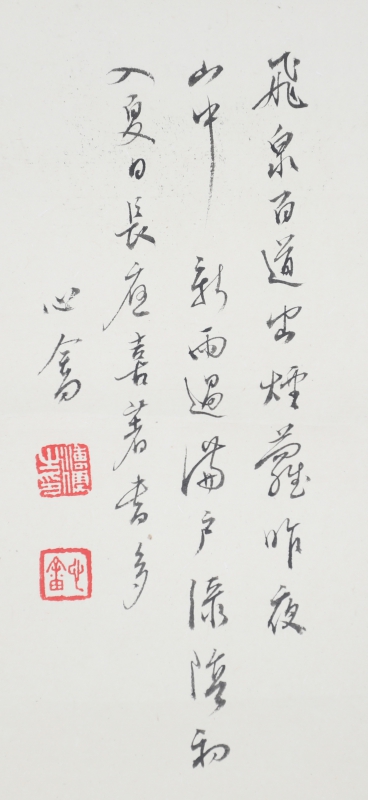 飛泉百道出煙蘿昨夜
山中新雨過滿戶綠陰初
入夏日長應喜著書多
心畬
溥儒之印
心畬